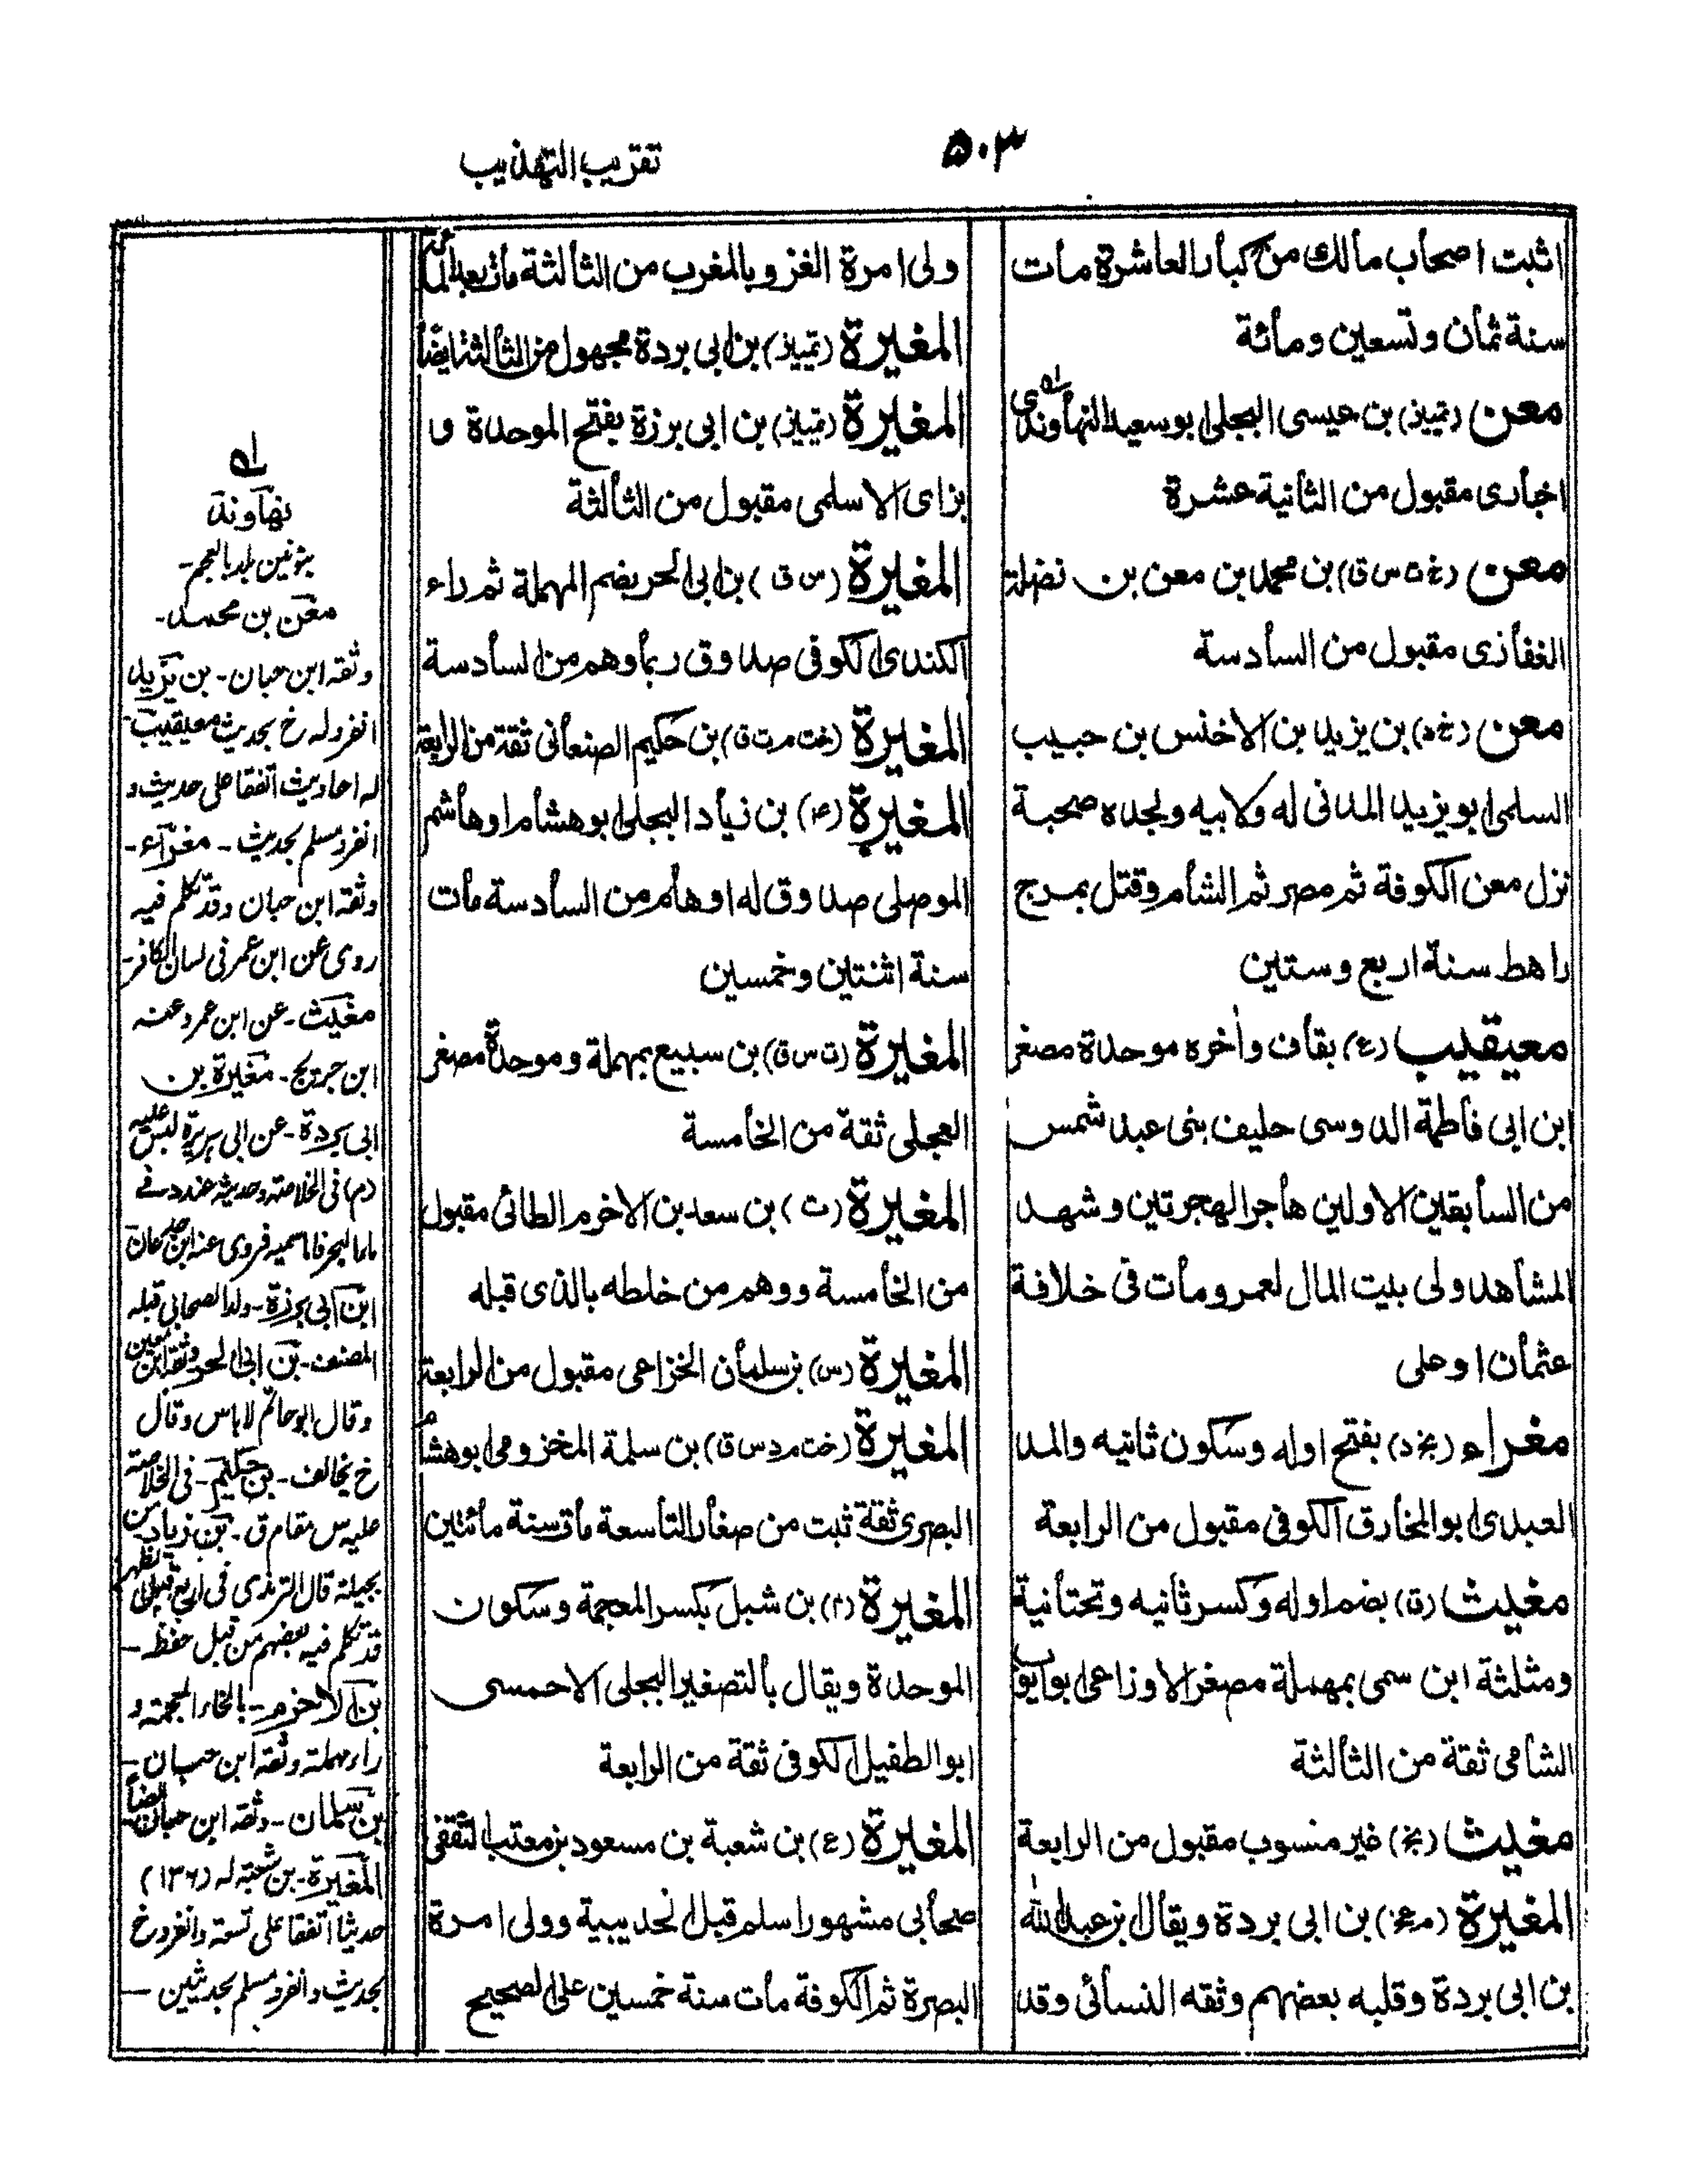 ۵۰۳
تقریب التهذیب
اثبت اصحاب مالك من كبار العاشرة مات
سنة ثمان وتسعين ومائة
معن (تمييز) بن عيسى البجلي ابو سعيد النهاوندي
اخبارى مقبول من الثانية عشرة
معن (خ ت س ق) بن محمد بن معن بن نضلة
الغفارى مقبول من السادسة
معن (خ د) بن يزيد بن الاخنس بن حبيب
السلمى ابو يزيد المدنى له ولابيه ولجده صحبة
نزل معن الكوفة ثم مصر ثم الشام وقتل بمرج
راهط سنة اربع وستين
معيقيب (ع) بقاف واخره موحدة مصغر
ابن ابى فاطمة الدوسى حليف بنى عبد شمس
من السابقين الاولين هاجر الهجرتين وشهد
المشاهد ولى بيت المال لعمر ومات فى خلافة
عثمان او على
مغراء (بخ د) بفتح اوله وسكون ثانيه والمد
العبدى ابو المخارق الكوفى مقبول من الرابعة
مغيث (ق) بضم اوله وكسر ثانيه وتحتانية
ومثلثة ابن سمى بمهملة مصغر الاوزاعى ابو ايوب
الشامى ثقة من الثالثة
مغيث (بخ) غير منسوب مقبول من الرابعة
المغيرة (مخ) بن ابى بردة ويقال بن عبد الله
بن ابى بردة وقلبه بعضهم وثقه النسائى وقد
ولى امرة الغزو بالمغرب من الثالثة مات بعد المائة
المغيرة (تمييز) بن ابى بردة مجهول من الثالثة ايضا
المغيرة (تمييز) بن ابى برزة بفتح الموحدة و
بزاى الاسلمى مقبول من الثالثة
المغيرة (س ق) بن ابى الحر بضم المهملة ثم راء
الكندى الكوفى صدوق ربما وهم من السادسة
المغيرة (خت م ت ق) بن حكيم الصنعانى ثقة من الرابعة
المغيرة (۴) بن زياد البجلى ابو هشام او هاشم
الموصلى صدوق له اوهام من السادسة مات
سنة اثنتين وخمسين
المغيرة (ت س ق) بن سبيع بمهملة وموحدة مصغر
العجلى ثقة من الخامسة
المغيرة (ت) بن سعد بن الاخرم الطائى مقبول
من الخامسة ووهم من خلطه بالذى قبله
المغيرة (س) بن سلمان الخزاعى مقبول من الرابعة
المغيرة (خت م د س ق) بن سلمة المخزومى ابو هشام
البصرى ثقة ثبت من صغار التاسعة مات سنة مائتين
المغيرة (م) بن شبل بكسر المعجمة وسكون
الموحدة ويقال بالتصغير البجلى الاحمسى
ابو الطفيل الكوفى ثقة من الرابعة
المغيرة (ع) بن شعبة بن مسعود بن معتب الثقفى
صحابى مشهور اسلم قبل الحديبية وولى امرة
البصرة ثم الكوفة مات سنة خمسين على الصحيح
نهاوند
بنونين بلد بالعجم-
معن بن محمد-
وثقه ابن حبان- بن يزيد
انفرد له خ بحديث معيقيب-
له احاديث اتفقا على حديث و
انفرد مسلم بحديث- مغراء-
وثقه ابن حبان وقد تكلم فيه
روى عن ابن عمر فى لسان الكافر-
مغيث- عن ابن عمر وعنه
ابن جريج- مغيرة بن
ابى بردة- عن ابى هريرة ليس عليه
(م) فى الخلاصة وحديثه عند د فى
ماء البحر
ابن ابى برزة- ولد الصحابى قبله
المصنف- بن ابى الحر وثقه ابن معين
وقال ابو حاتم لا باس وقال
خ يخالف- بن حكيم- فى الخلاصة
عليه س مقام ق- بن زياد- من
بجيلة قال الترمذى فى
قد تكلم فيه بعضهم من قبل حفظه-
بن الاخرم- بالخاء المعجمة و
راء مهملة وثقه ابن حبان-
بن سلمان- وثقه ابن حبان ايضا-
المغيرة- بن شعبة له (۱۳۶)
حديثا اتفقا على تسعة وانفرد خ
بحديث وانفرد مسلم بحديثين-